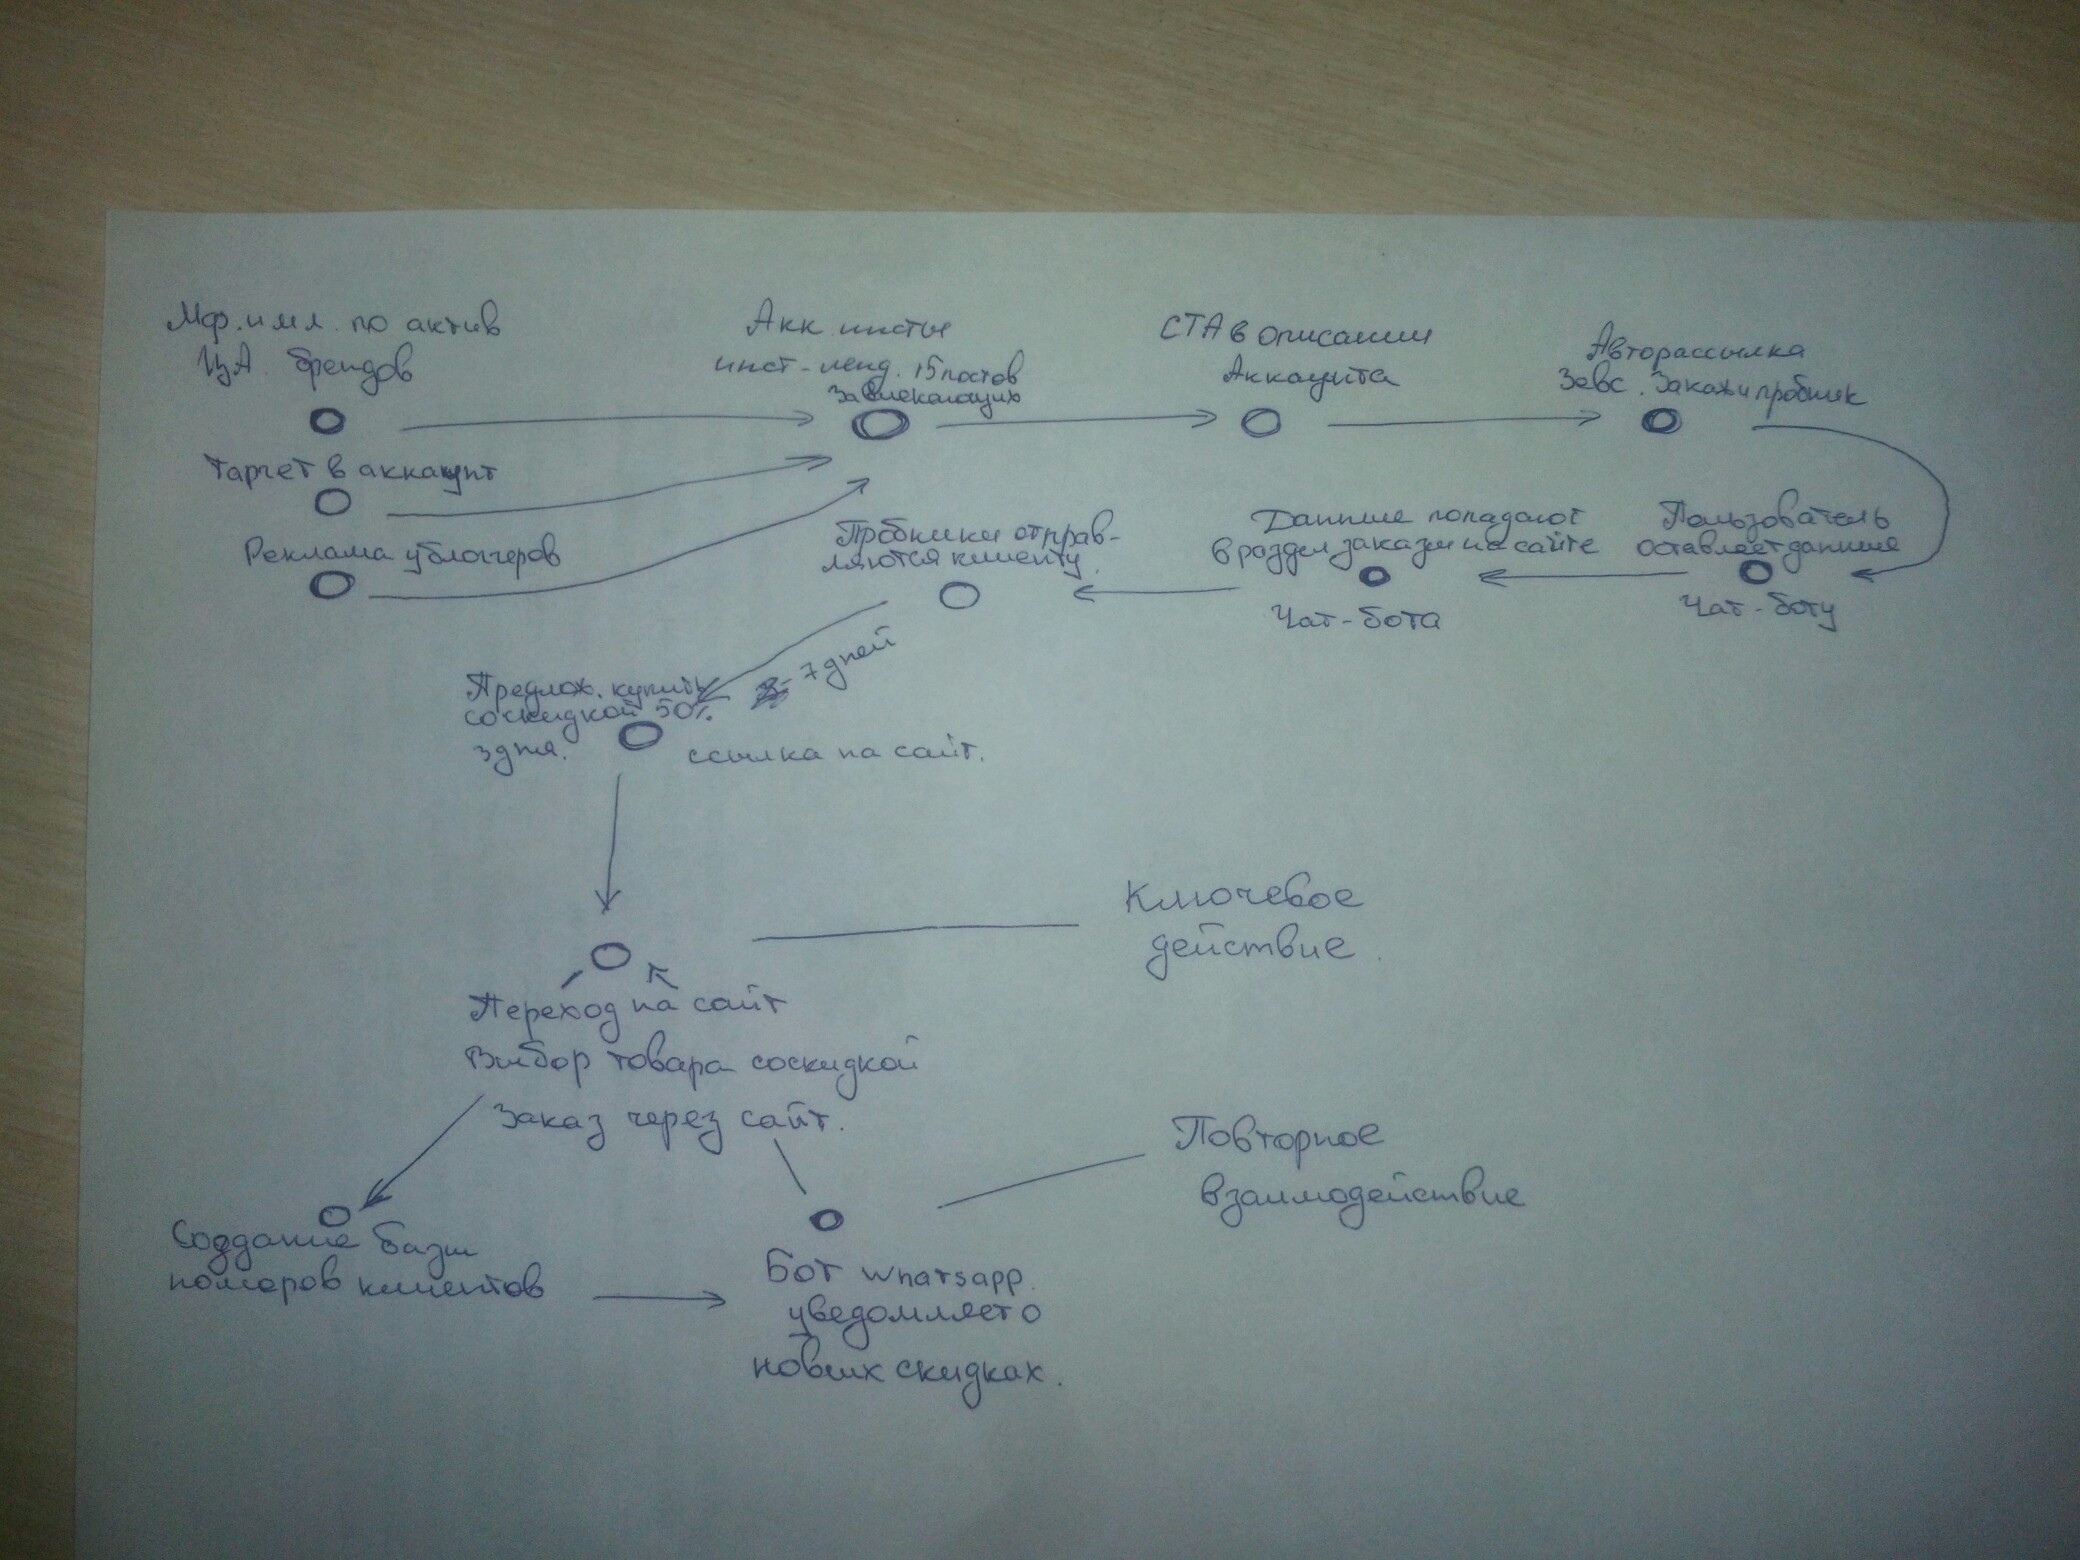 Мф. и мл. по актив
ЦА. брендов
Таргет в аккаунт
Реклама у блоггеров
Акк инсты
инст-ленд. 15 постов
завлекающих
CTA в описании
Аккаунта
Авторассылка
Зевс. Закажи пробник
Пользователь
оставляет данные
Чат-боту
Данные попадают
в раздел заказы на сайте
Чат-бота
Пробники отправ-
ляются клиенту.
7 дней
Предлож. купить
со скидкой 50%
3 дня.
ссылка на сайт.
Ключевое
действие.
Переход на сайт
Выбор товара со скидкой
Заказ через сайт.
Повторное
взаимодействие
Создание базы
номеров клиентов
Бот whatsapp.
уведомляет о
новых скидках.